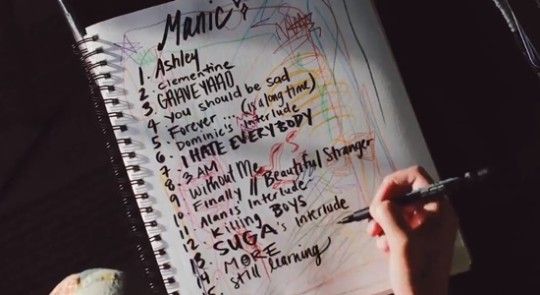 Manic
1. Ashley
2. clementine
3. GRAVEYARD
4 You should be sad
5. Forever ... (is a long time)
6. Dominic's Interlude
7. I HATE EVERYBODY
8. 3 AM
9 Without Me
10. Finally // Beautiful Stranger
11. Alanis' Interlude
12. Killing BOYS
13. SUGA's interlude
14 MORE
15. still learning